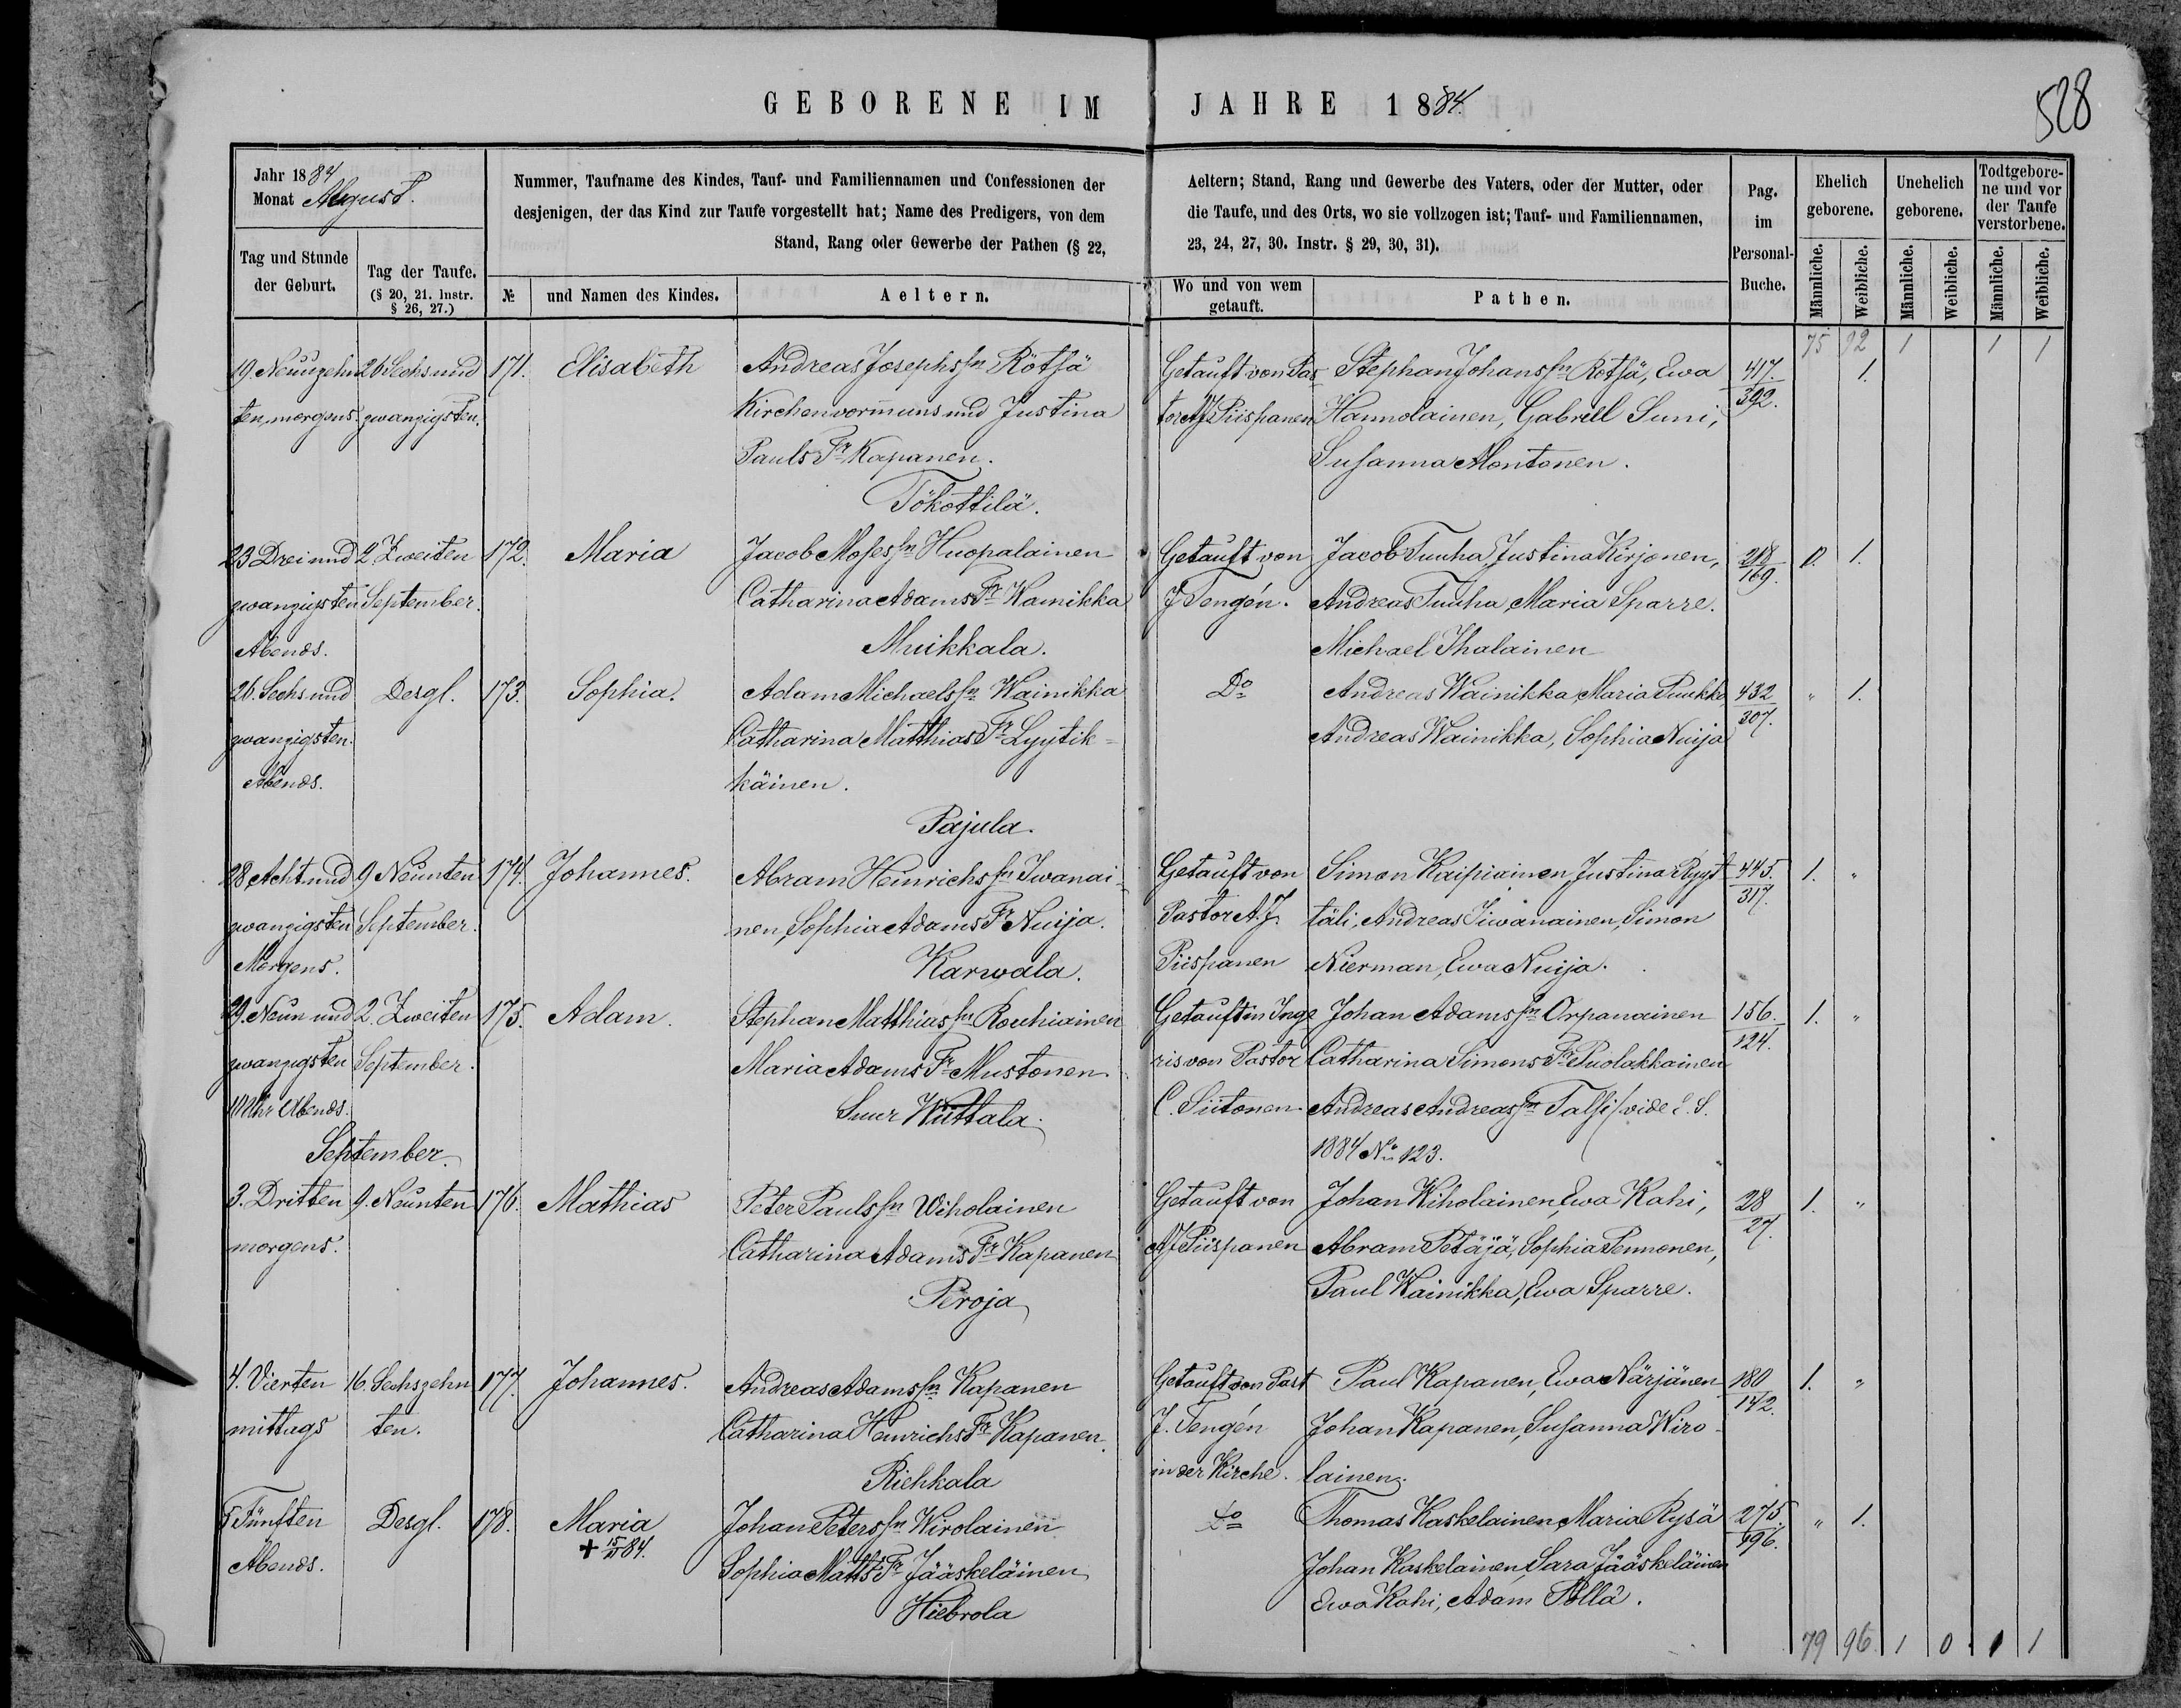 GEBORENE IM JAHRE 1884.
528
Jahr 1884
Monat August.
Nummer, Taufname des Kindes, Tauf- und Familiennamen und Confessionen der
desjenigen, der das Kind zur Taufe vorgestellt hat; Name des Predigers, von dem
Stand, Rang oder Gewerbe der Pathen (§ 22,
Aeltern; Stand, Rang und Gewerbe des Vaters, oder der Mutter, oder
die Taufe, und des Orts, wo sie vollzogen ist; Tauf- und Familiennamen,
23, 24, 27, 30. Instr. § 29, 30, 31).
Pag.
im
Personal-
Buche.
Ehelich
geborene.
Unehelich
geborene.
Todtgebore-
ne und vor
der Taufe
verstorbene.
Tag und Stunde
der Geburt.
Tag der Taufe.
(§ 20, 21. Instr.
§ 26, 27.)
№
und Namen des Kindes.
Aeltern.
Wo und von wem
getauft.
Pathen.
Männliche.
Weibliche.
Männliche.
Weibliche.
Männliche.
Weibliche.
75 92 1 1 1
19. Neunzehn
ten, morgens.
26 Sechs und
zwanzigsten.
171.
Elisabeth
Andreas Josephs sn Rötsä
Kirchenvormuns und Justina
Pauls Tr Kapanen.
Tökottilä.
Getauft von Pas
tor AJ Piispanen
Stephan Johans sn Rötsä, Ewa
Hannolainen, Gabriel Suni,
Susanna Montonen.
417.
392.
1.
23 Drei und
zwanzigsten
Abends.
2 Zweiten
September.
172.
Maria
Jacob Moses sn Huopalainen
Catharina Adams Tr Wainikka
Muikkala.
Getauft von
J Tengén.
Jacob Tuuha, Justina Kirjonen,
Andreas Tuuha, Maria Sparre.
Michael Ihalainen
218
169.
1.
26. Sechs und
zwanzigsten.
Abends.
Desgl.
173.
Sophia.
Adam Michaels sn Wainikka
Catharina Matthias Tr Lyytik=
käinen.
Pajula.
Do
Andreas Wainikka, Maria Puukko,
Andreas Wainikka, Sophia Nuija
432
307.
" 1.
28 Acht und
zwanzigsten
Morgens.
9 Neunten
September.
174.
Johannes.
Abram Heinrichs sn Iwanai-
nen, Sophia Adams Tr Nuija.
Karwala.
Getauft von
Pastor A. J.
Piispanen
Simon Kaipiainen, Justina Ryyt
täli, Andreas Iiwanainen, Simon
Nierman, Ewa Nuija.
445.
317.
1. "
29. Neun und
zwanzigsten
10 Uhr Abends.
2. Zweiten
September.
175.
Adam.
Stephan Matthias sn Rouhiainen
Maria Adams Tr Mustonen.
Suur Wuttala.
Getauft in Inge
ris von Pastor
C. Siitonen.
Johan Adams sn Orpanainen
Catharina Simons Tr Puolakkainen
Andreas Andreas sn Talsi / vide E. S.
1884 No 123.
156.
124.
1. "
September.
3. Dritten
morgens.
9. Neunten
176.
Mathias
Peter Pauls sn Wiholainen
Catharina Adams Tr Kapanen
Peroja
Getauft von
AJ Piispanen
Johan Wiholainen, Ewa Kahi,
Abram Petäjä, Sophia Pennonen,
Paul Wainikka, Ewa Sparre.
28
27.
1. "
4. Vierten
mittags
16. Sechszehn
ten.
177.
Johannes.
Andreas Adams sn Kapanen
Catharina Heinrichs Tr Kapanen.
Richkala
Getauft von Past
J. Tengén
in der Kirche.
Paul Kapanen, Ewa Närjänen
Johan Kapanen, Susanna Wiro-
lainen.
180
142.
1. "
5 Fünften
Abends.
Desgl.
178.
Maria
+ 15/11 84.
Johan Peters sn Wirolainen
Sophia Matts Tr Jääskeläinen
Hiebrola
Do
Thomas Kaskelainen, Maria Rysä
Johan Kaskelainen, Sara Jääskeläinen
Ewa Kahi, Adam Pöllä.
275.
196.
" 1.
79 96 1 0 1 1